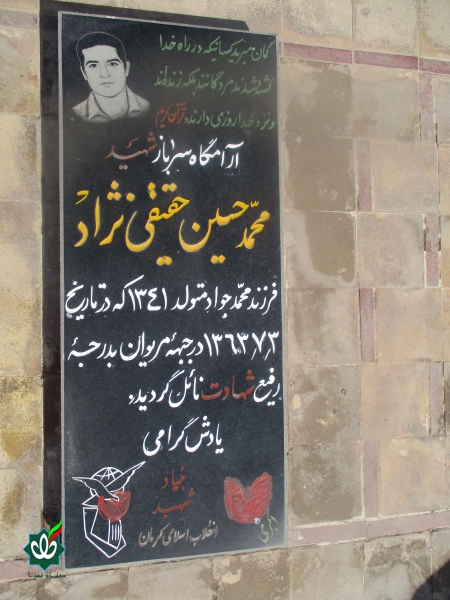 گمان مبرید کسانیکه در راه خدا
کشته شدند مردگانند بلکه زنده‌اند
و نزد خدا روزی دارند. قرآن کریم
آرامگاه سرباز شهید
محمدحسین حقیقی نژاد
فرزند محمدجواد متولد ۱۳۴۱ که در تاریخ
۱۳۶۳/۷/۳ در جبههٔ مریوان بدرجهٔ
رفیع شهادت نائل گردید.
یادش گرامی
بنیاد
شهید
انقلاب اسلامی کرمان